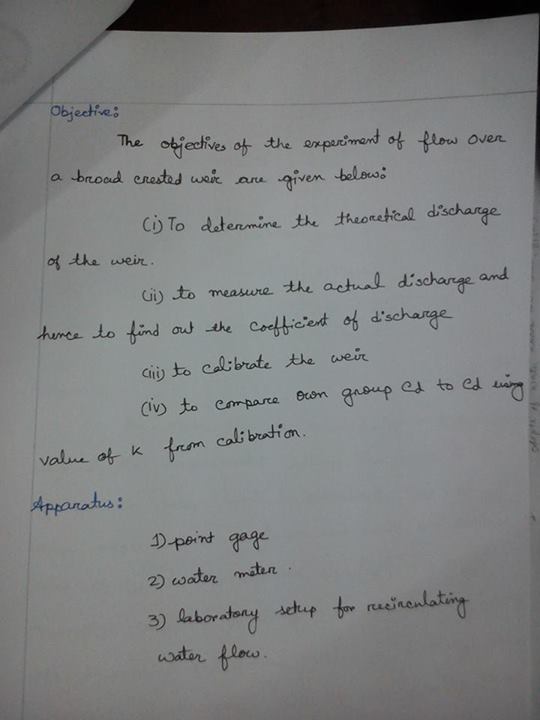 Objective:
The objectives of the experiment of flow over
a broad crested weir are given below:
(i) To determine the theoretical discharge
of the weir.
(ii) to measure the actual discharge and
hence to find out the coefficient of discharge
(iii) to calibrate the weir
(iv) to compare own group Cd to Cd using
value of K from calibration.
Apparatus:
1) point gage
2) water meter.
3) laboratory setup for recirculating
water flow.